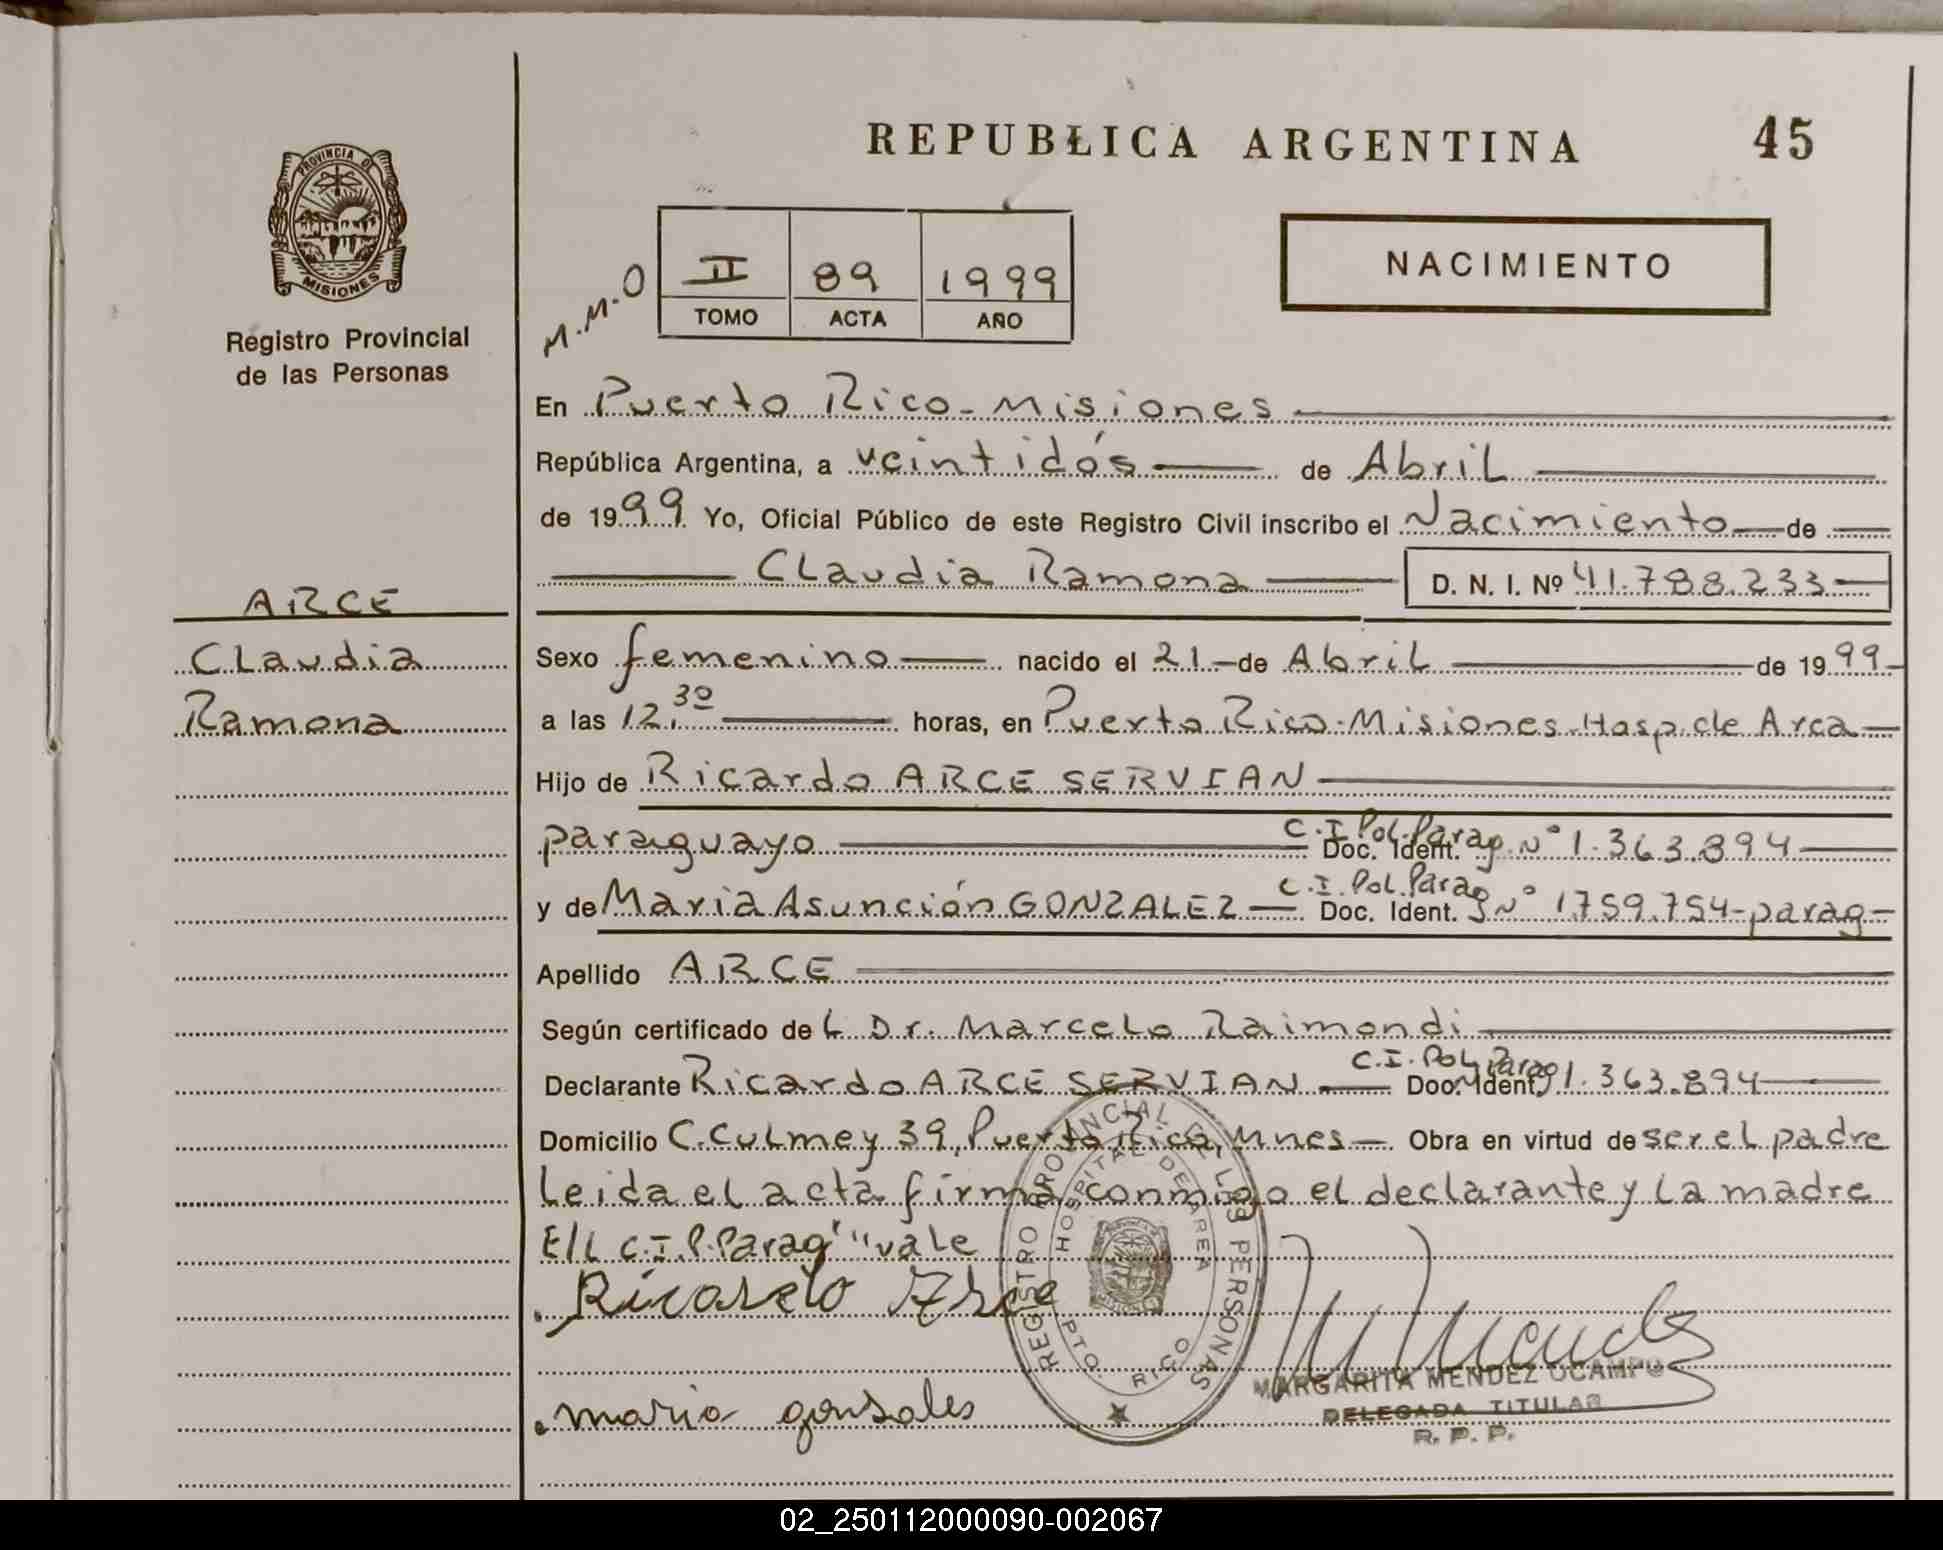 REPUBLICA ARGENTINA 45
PROVINCIA DE
MISIONES
Registro Provincial
de las Personas
M.M.O
II 89 1999
TOMO ACTA AÑO
NACIMIENTO
En Puerto Rico - Misiones
República Argentina, a veintidós de Abril
de 1999 Yo, Oficial Público de este Registro Civil inscribo el Nacimiento de
Claudia Ramona D. N. I. Nº 41.788.233
ARCE
Claudia
Ramona
Sexo femenino nacido el 21 de Abril de 1999
a las 12,30 horas, en Puerto Rico - Misiones - Hosp. de Area
Hijo de Ricardo ARCE SERVIAN
paraguayo C.I. Pol. Parag. Doc. Ident. Nº 1.363.894
y de Maria Asunción GONZALEZ C.I. Pol. Parag Doc. Ident. Nº 1.759.754 - parag
Apellido ARCE
Según certificado del Dr. Marcelo Raimondi
Declarante Ricardo ARCE SERVIAN C.I. Pol. Parag Doc. Ident. 1.363.894
Domicilio C. Culmey 39, Puerto Rico, Mnes Obra en virtud de ser el padre
Leida el acta firma conmigo el declarante y la madre
E/L C.I.P. Parag" "vale
Ricardo Arce
maria gonsales
REGISTRO PROVINCIAL DE LAS PERSONAS
HOSPITAL DE AREA
PTO. RICO
MARGARITA MENDEZ OCAMPO
DELEGADA TITULAR
R. P. P.
02_250112000090-002067